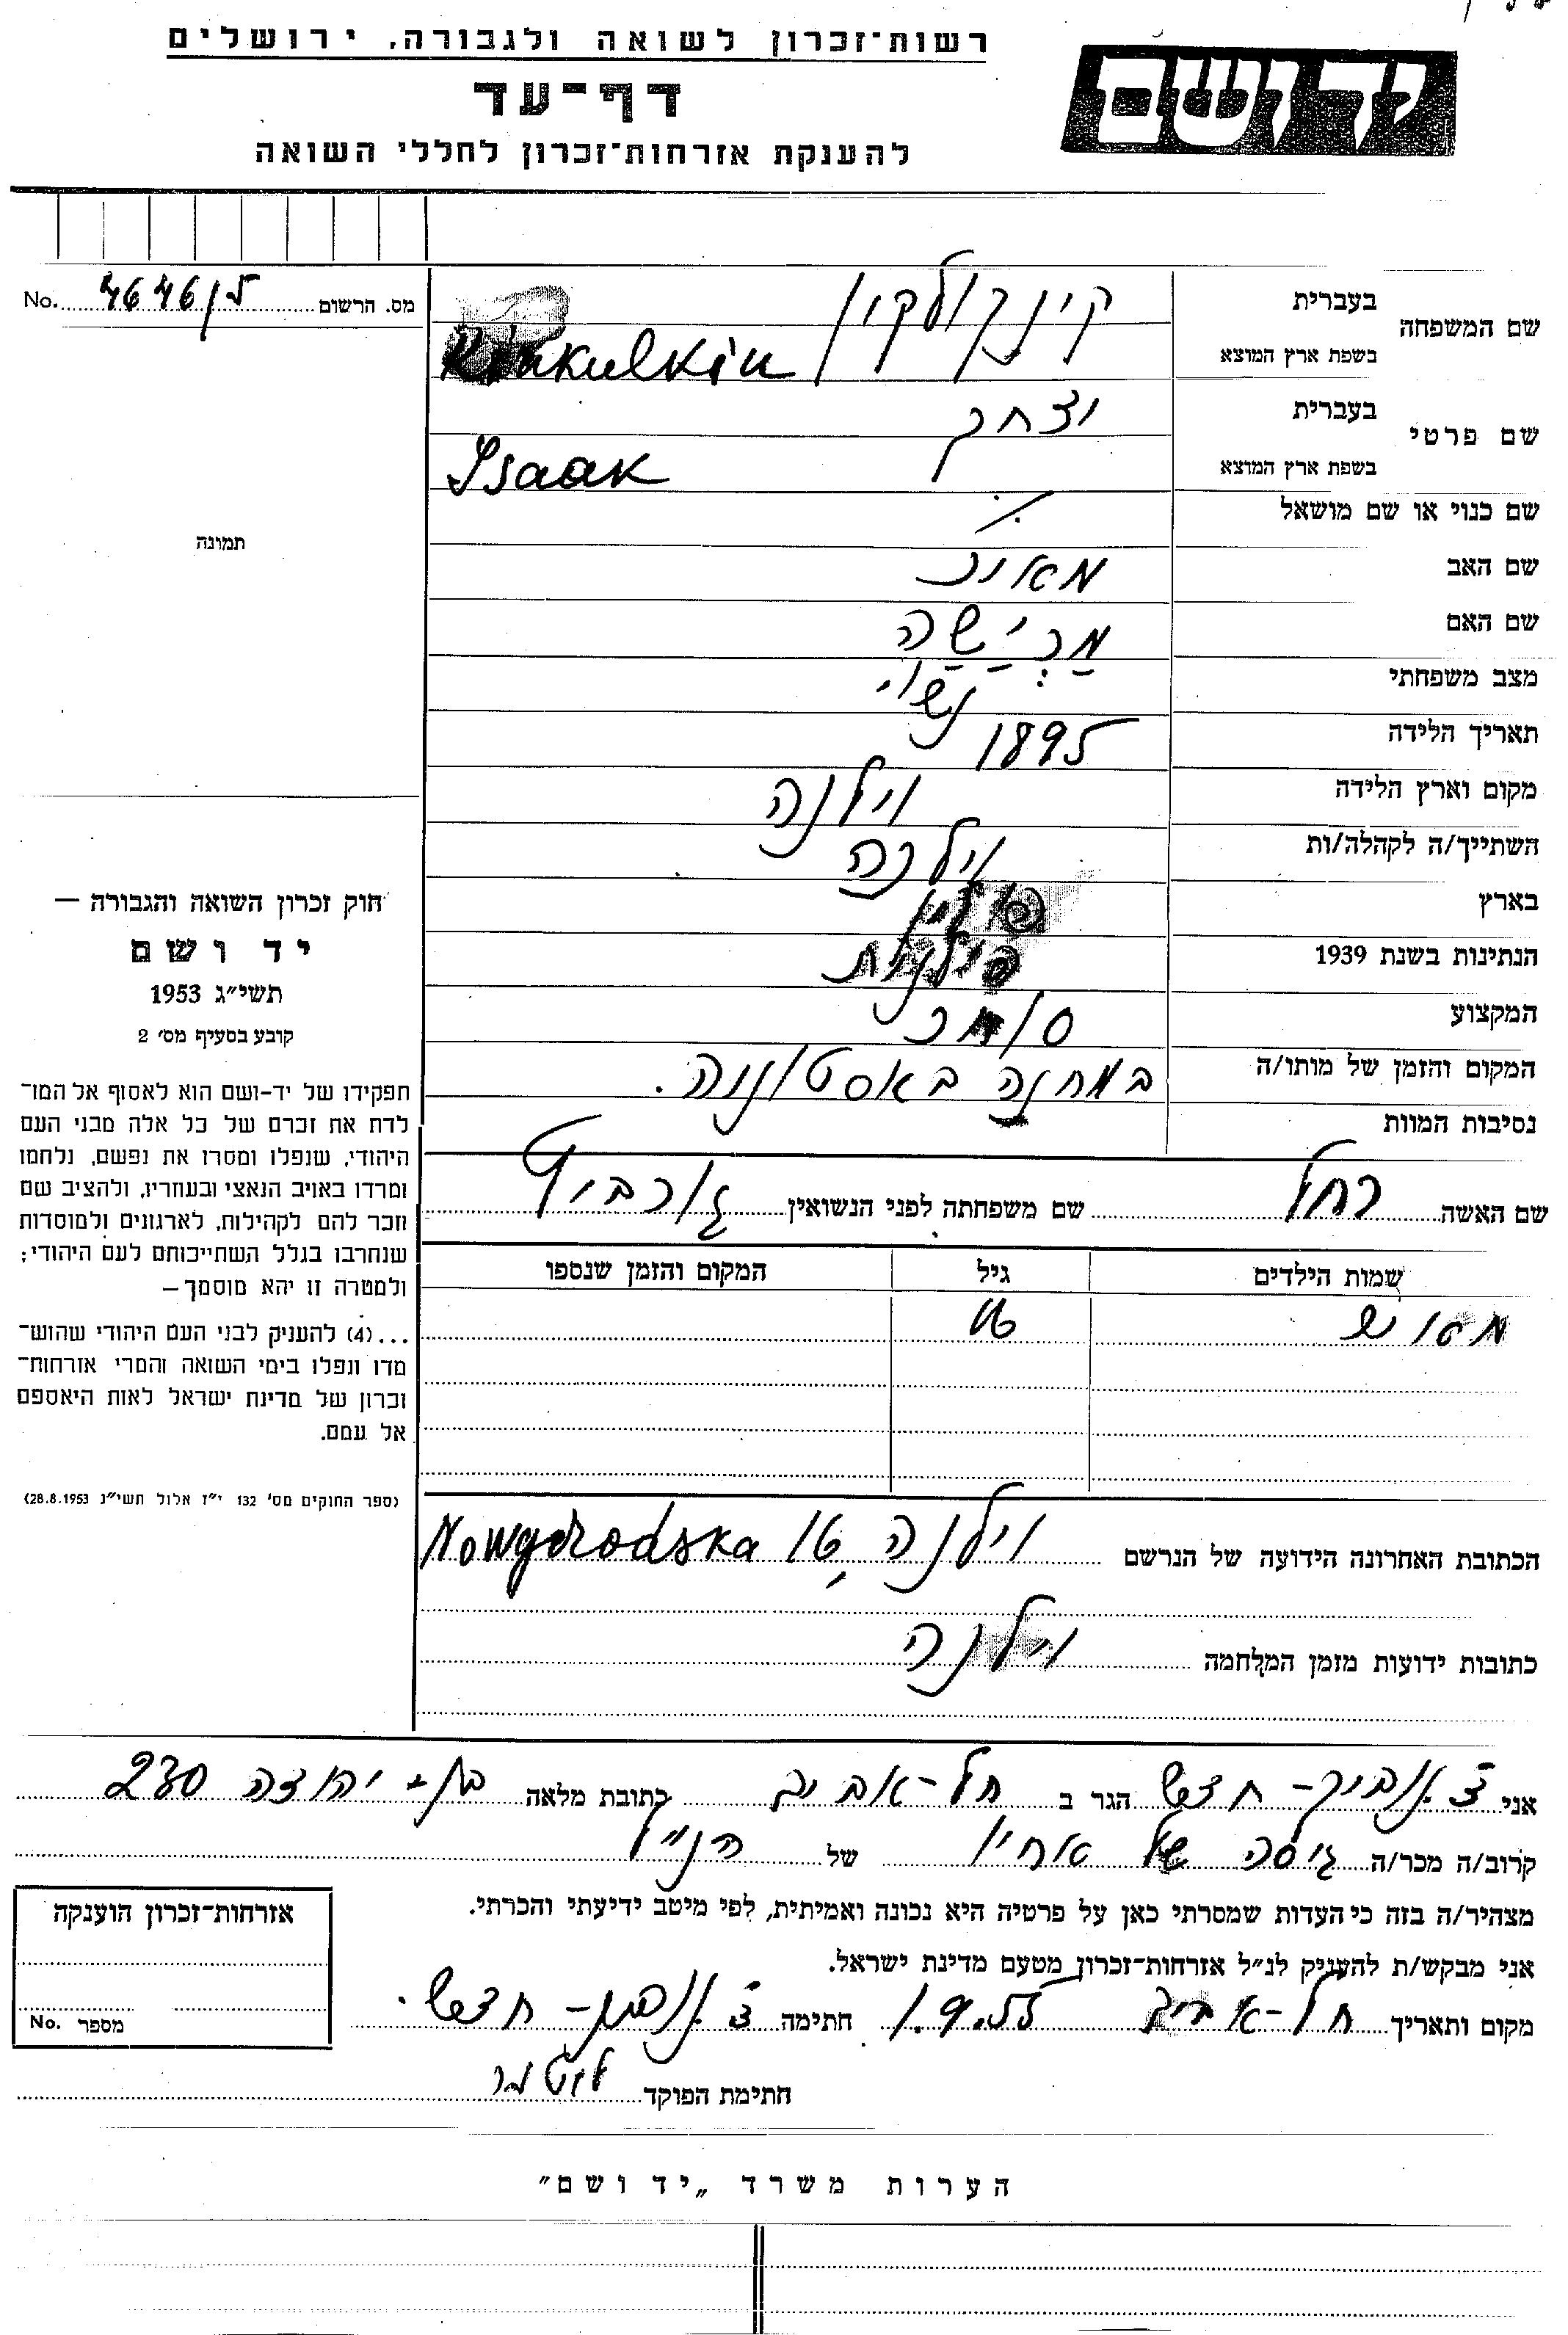 רשות־זכרון לשואה ולגבורה, ירושלים
יד ושם
דף־עד
להענקת אזרחות־זכרון לחללי השואה
No. 4646/ל מס. הרשום
שם המשפחה בעברית קינקולקין
בשפת ארץ המוצא Kinkulkin
שם פרטי בעברית יצחק
בשפת ארץ המוצא Isaak
שם כנוי או שם מושאל ٪
תמונה
שם האב מאיר
שם האם מַרְיַשָה
מצב משפחתי נשוי
תאריך הלידה 1895
מקום וארץ הלידה וילנה
השתייך/ה לקהלה/ות וילנה
בארץ פולין
הנתינות בשנת 1939 פולנית
המקצוע סוחר
המקום והזמן של מותו/ה במחנה באסטוניה.
נסיבות המוות
חוק זכרון השואה והגבורה —
יד ושם
תשי״ג 1953
קובע בסעיף מס׳ 2
תפקידו של יד-ושם הוא לאסוף אל המו־
לדת את זכרם של כל אלה מבני העם
היהודי, שנפלו ומסרו את נפשם, נלחמו
ומרדו באויב הנאצי ובעוזריו, ולהציב שם
וזכר להם לקהילות, לארגונים ולמוסדות
שנחרבו בגלל השתייכותם לעם היהודי;
ולמטרה זו יהא מוסמך —
...(4) להעניק לבני העם היהודי שהוש־
מדו ונפלו בימי השואה והמרי אזרחות־
זכרון של מדינת ישראל לאות היאספם
אל עמם.
(ספר החוקים מס׳ 132 י״ז אלול תשי״ג 28.8.1953)
שם האשה רחל שם משפחתה לפני הנשואין גורביץ
שמות הילדים גיל המקום והזמן שנספו
הכתובת האחרונה הידועה של הנרשם וילנה, Nowgorodska 16
כתובות ידועות מזמן המלחמה וילנה
אני הגר ב תל-אביב כתובת מלאה בן-יהודה 230
קרוב/ה מכר/ה גיסה של אחיו של הנ״ל
מצהיר/ה בזה כי העדות שמסרתי כאן על פרטיה היא נכונה ואמיתית, לפי מיטב ידיעתי והכרתי.
אני מבקש/ת להעניק לנ״ל אזרחות־זכרון מטעם מדינת ישראל.
מקום ותאריך תל-אביב 1.9.55 חתימה
חתימת הפוקד
אזרחות־זכרון הוענקה
מספר No.
הערות משרד „יד ושם״